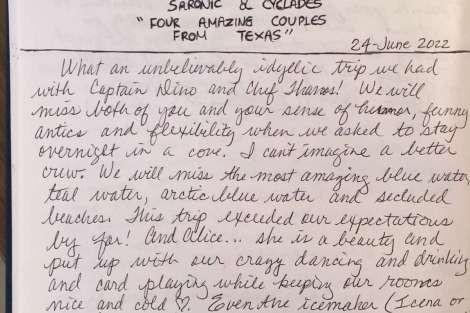 SARONIC & CYCLADES
"FOUR AMAZING COUPLES
FROM TEXAS"
24-June 2022
What an unbelievably idyllic trip we had
with Captain Dino and Chef Thanos! We will
miss both of you and your sense of humor, funny
antics and flexibility when we asked to stay
overnight in a cove. I can't imagine a better
crew. We will miss the most amazing blue water,
teal water, arctic blue water and secluded
beaches. This trip exceeded our expectations
by far! And Alice... she is a beauty and
put up with our crazy dancing and drinking
and card playing while keeping our rooms
nice and cold ♡. Even the icemaker (Icena or